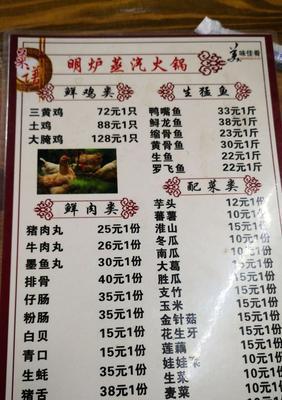 菜谱
明炉蒸汽火锅
美味佳肴
鲜鸡类
三黄鸡 72元1只
土鸡 88元1只
大腌鸡 128元1只
鲜肉类
猪肉丸 25元1份
牛肉丸 26元1份
墨鱼丸 30元1份
排骨 40元1份
仔肠 35元1份
粉肠 35元1份
白贝 15元1份
青口 15元1份
生蚝 35元1份
猪舌 38元1份
生猛鱼
鸭嘴鱼 33元1斤
鲟龙鱼 38元1斤
缩骨鱼 22元1斤
黄骨鱼 30元1斤
生鱼 22元1斤
罗飞鱼 22元1斤
配菜类
芋头 12元1份
蕃薯 10元1份
淮山 15元1份
冬瓜 10元1份
南瓜 10元1份
大葛 15元1份
胜瓜 15元1份
支竹 15元1份
玉米 15元1份
金针菇 15元1份
花生牙 15元1份
莲藕 15元1份
娃娃菜 10元1份
生菜 10元1份
麦菜 10元1份